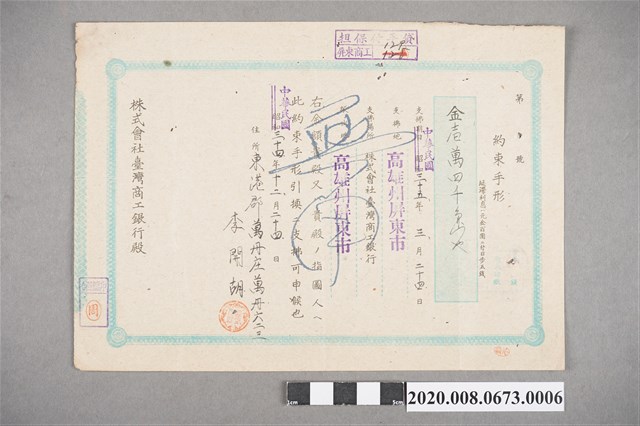 担保
屏東商工
129
第 號
約束手形
金壱萬四千
支拂期日 昭和 中華民國 三十五年 三月二十四日
支拂地 高雄州屏東市
支拂場所 株式會社臺灣商工銀行
高雄州屏東市
右金額 貴殿又ハ貴殿ノ指圖人ヘ
此約束手形引換ニ支拂可申候也
昭和 中華民國 三十四年十二月二十四日
住所 東港郡萬丹庄萬丹六二三
李開胡
株式會社臺灣商工銀行殿
周
5cm
2020.008.0673.0006